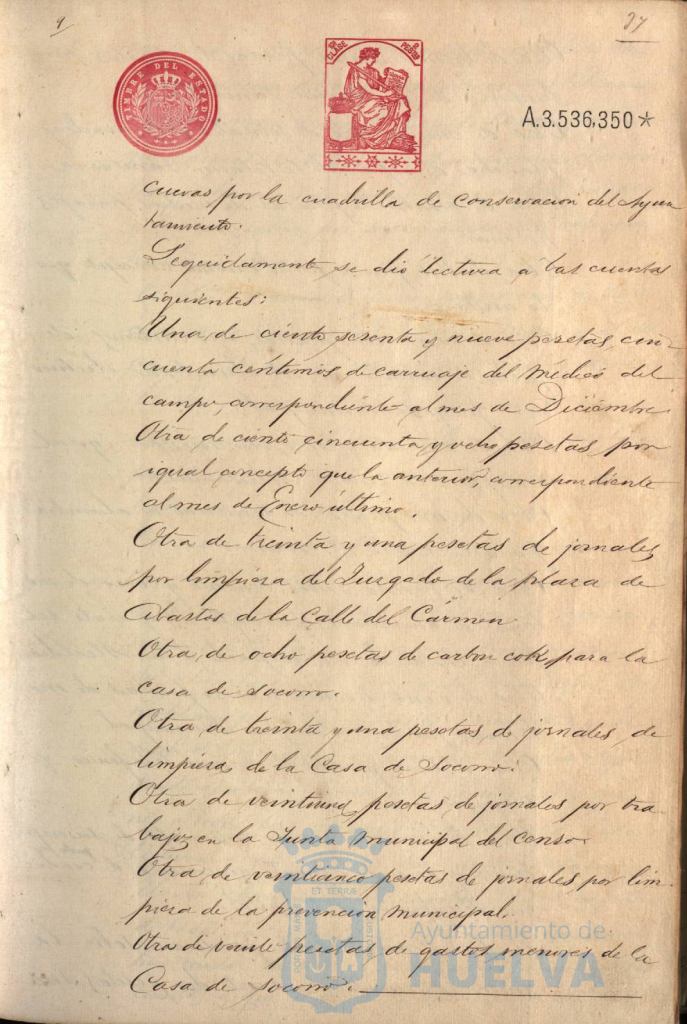 9
37
TIMBRE DEL ESTADO
CLASE
PESETAS
A.3.536,350*
cuevas por la cuadrilla de conservacion del Ayun
tamiento.
Seguidamente se dió lectura á las cuentas
siguientes:
Una de ciento sesenta y nueve pesetas, cin-
cuenta céntimos de carruaje del médico del
campo, correspondiente al mes de Diciembre
Otra de ciento cincuenta y ocho pesetas por
igual concepto que la anterior, correspondiente
al mes de Enero último.
Otra de treinta y una pesetas de jornales
por limpieza del Juzgado de la plaza de
Abastos de la Calle del Cármen
Otra de ocho pesetas de carbon cok para la
casa de socorro.
Otra de treinta y una pesetas de jornales de
limpieza de la Casa de Socorro.
Otra de veintiuna pesetas de jornales por tra
bajos en la Junta municipal del censo.
Otra de veinticinco pesetas de jornales por lim-
pieza de la prevencion municipal.
Otra de veinte pesetas de gastos menores de la
Casa de socorro.
Ayuntamiento de
HUELVA